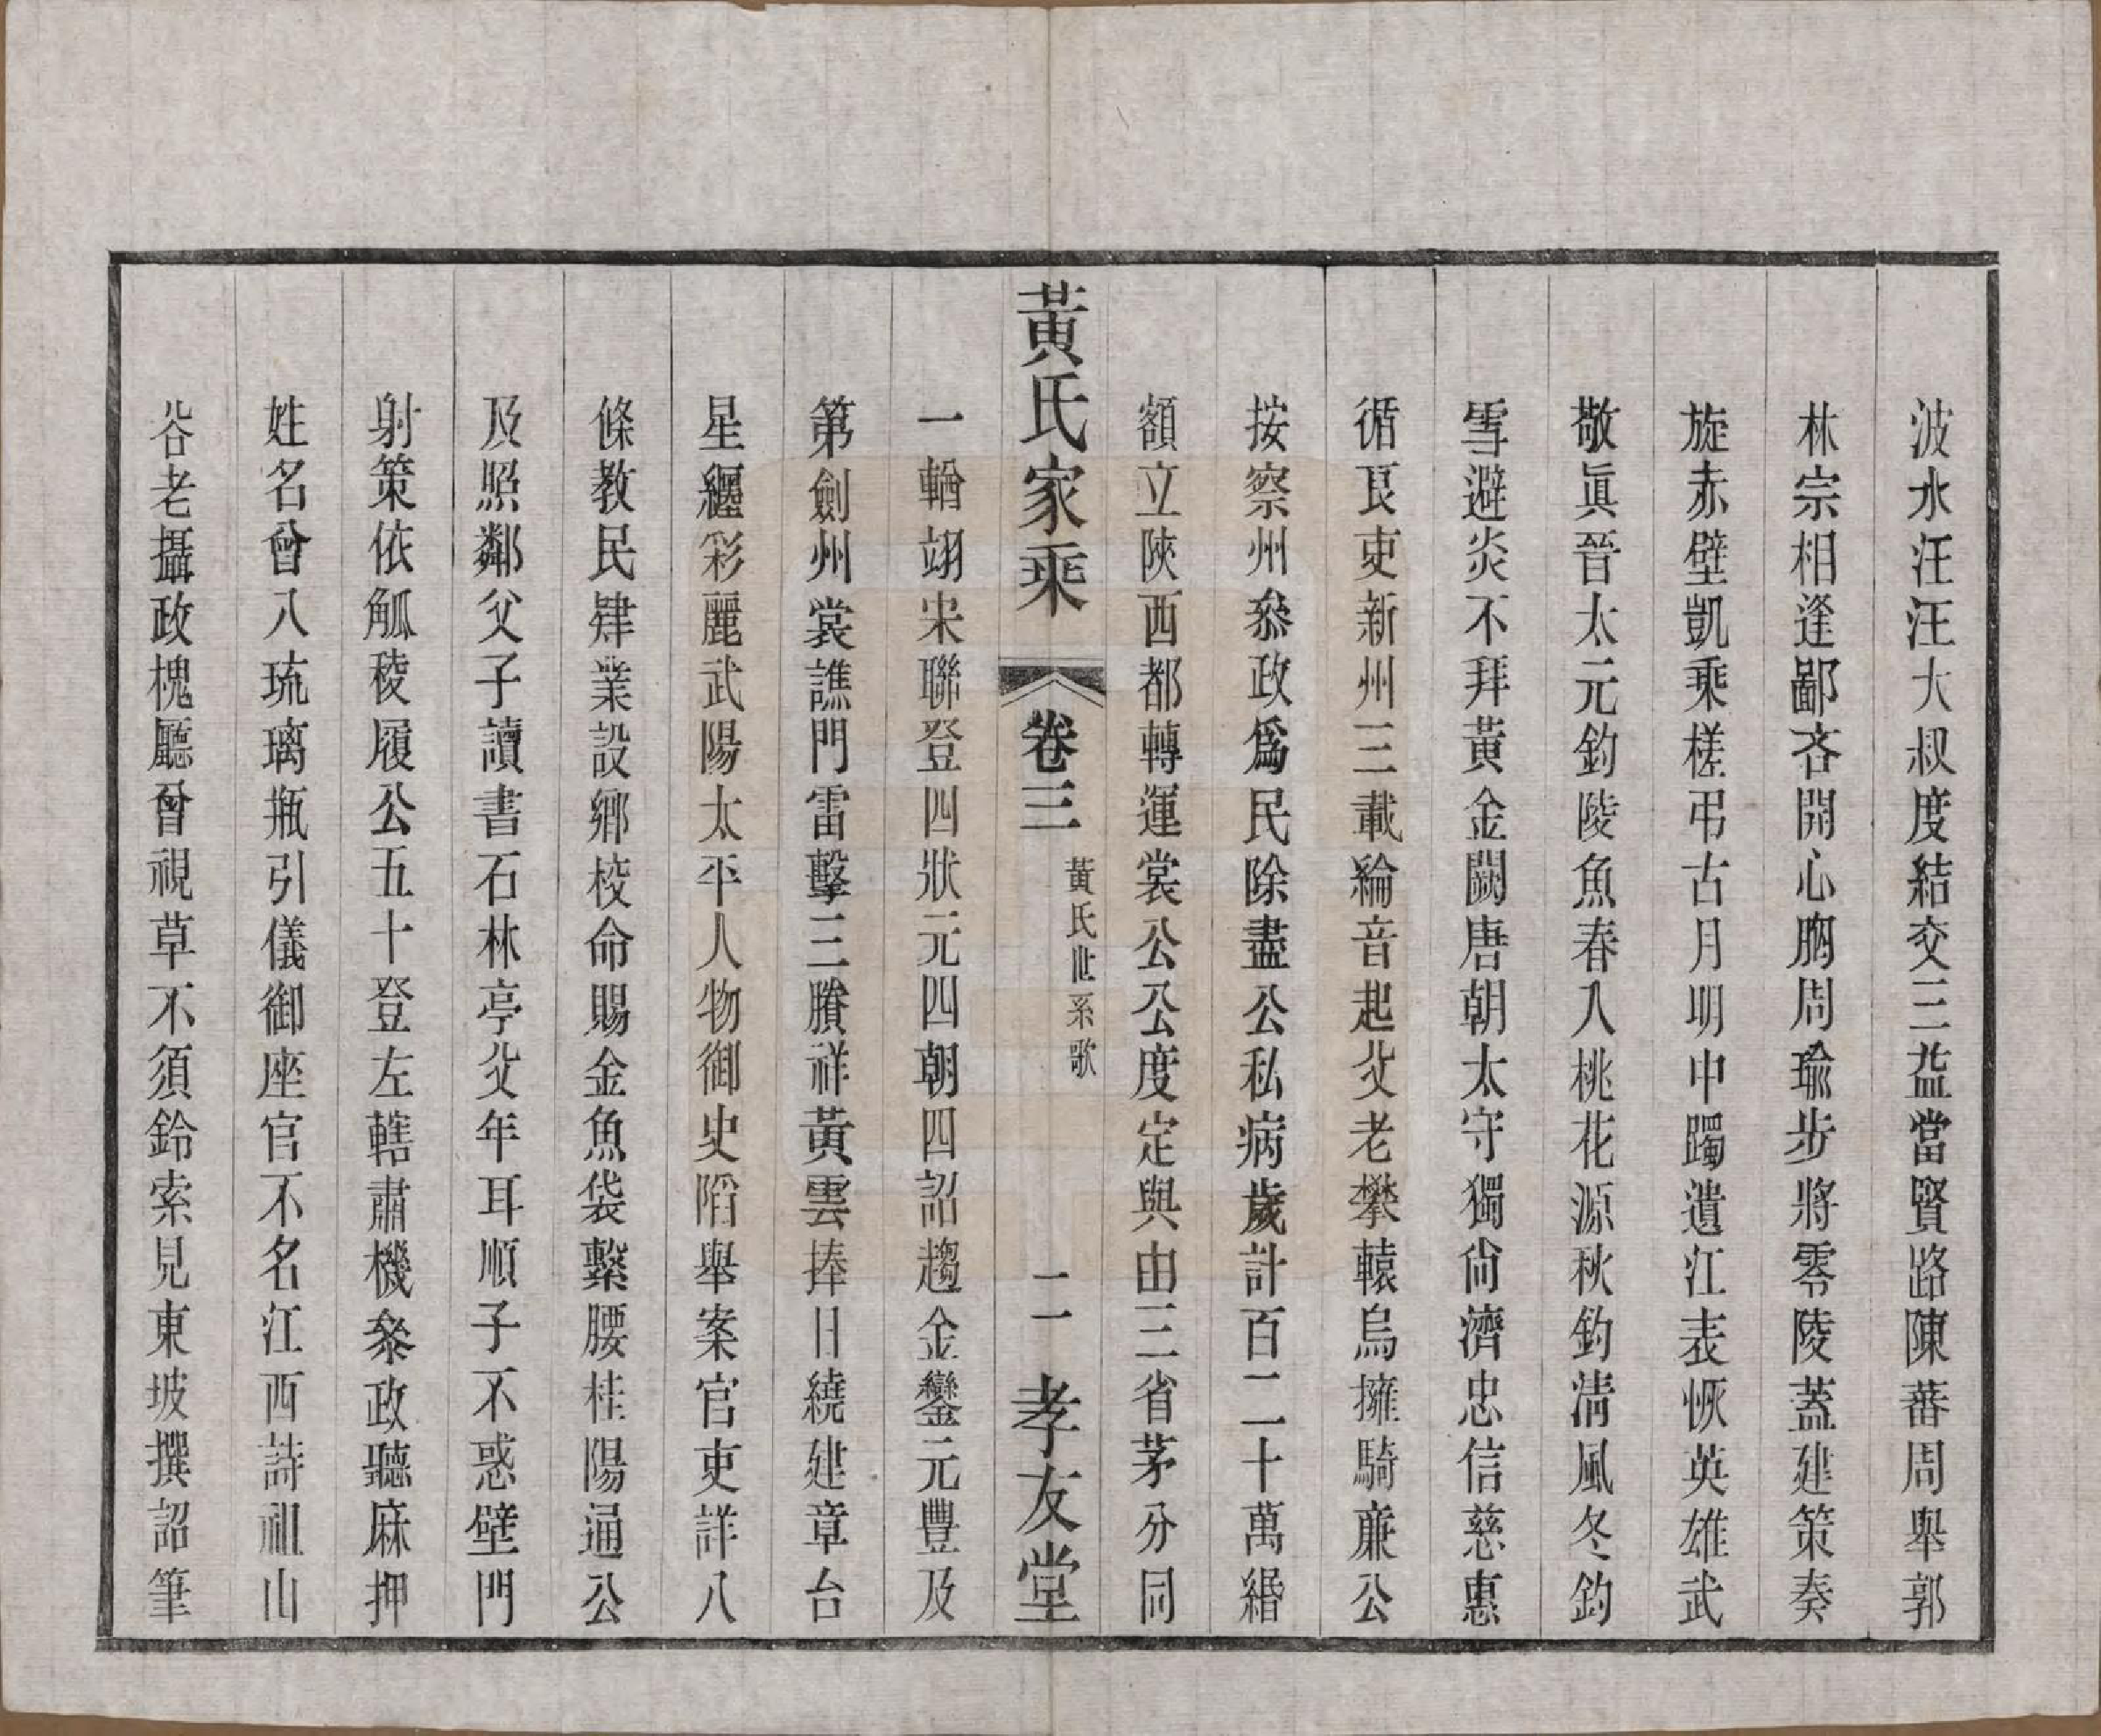 波水汪汪大叔度結交三益當賢路陳蕃周舉郭
林宗相逢鄙吝開心胸周瑜步將零陵蓋建策奏
旋赤壁凱乘槎弔古月明中躅遺江表恢英雄武
敬眞晉太元鈞陵魚春入桃花源秋鈞淸風冬鈞
雪避炎不拜黃金闕唐朝太守獨尙濟忠信慈惠
循艮吏新州三載綸音起父老攀轅烏擁騎廉公
按察州叅政爲民除盡公私病歲計百二十萬緡
額立陝西都轉運裳公公度定與由三省茅分同
黃氏家乘
卷三
黃氏世系歌
二
孝友堂
一輶翊宋聯登四狀元四朝四詔趨金鑾元豐及
第劍州裳譙門雷擊三賸祥黃雲捧日繞建章台
星纒彩麗武陽太平人物御史蹈舉案官吏詳八
條教民肄業設鄉校命賜金魚袋繫腰桂陽通公
及照鄰父子讀書石林亭父年耳順子不惑壁門
射策依觚稜履公五十登左轄肅機叅政聽麻押
姓名曾入琉璃瓶引儀御座官不名江西詩祖山
谷老攝政槐廳曾視草不須鈴索見東坡撰詔筆